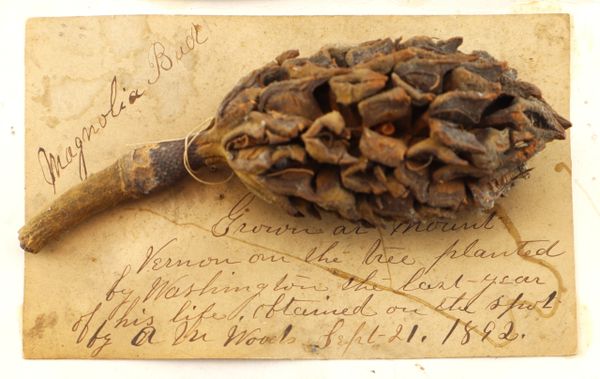 Magnolia Bud
Grown at Mount
Vernon on the tree planted
by Washington the last year
of his life, obtained on the spot
by A M Woods Sept-21. 1892.